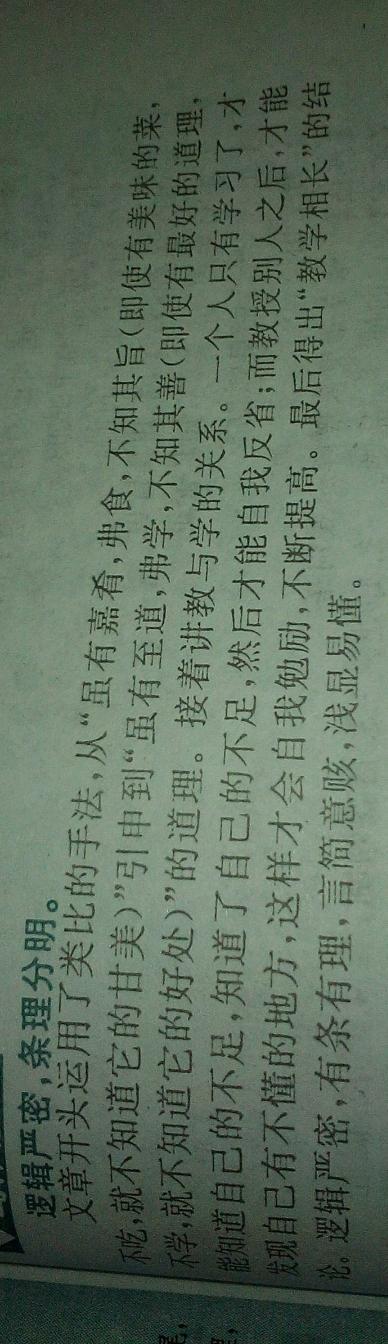 逻辑严密，条理分明。
文章开头运用了类比的手法，从“虽有嘉肴，弗食，不知其旨（即使有美味的菜，
不吃，就不知道它的甘美）”引申到“虽有至道，弗学，不知其善（即使有最好的道理，
不学，就不知道它的好处）”的道理。接着讲教与学的关系。一个人只有学习了，才
能知道自己的不足，知道了自己的不足，然后才能自我反省；而教授别人之后，才能
发现自己有不懂的地方，这样才会自我勉励，不断提高。最后得出“教学相长”的结
论。逻辑严密，有条有理，言简意赅，浅显易懂。